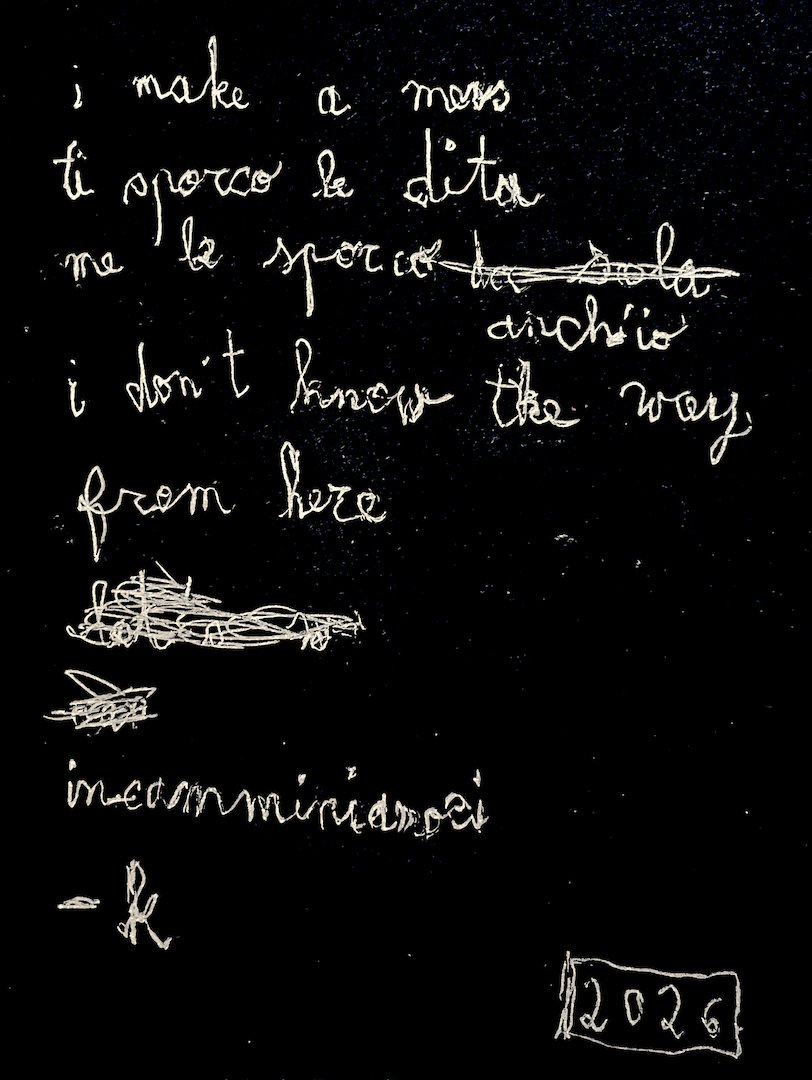 i make a mess
ti sporco le dita
me le sporco da sola
anch'io
i don't know the way
from here
incamminiamoci
- k
2026